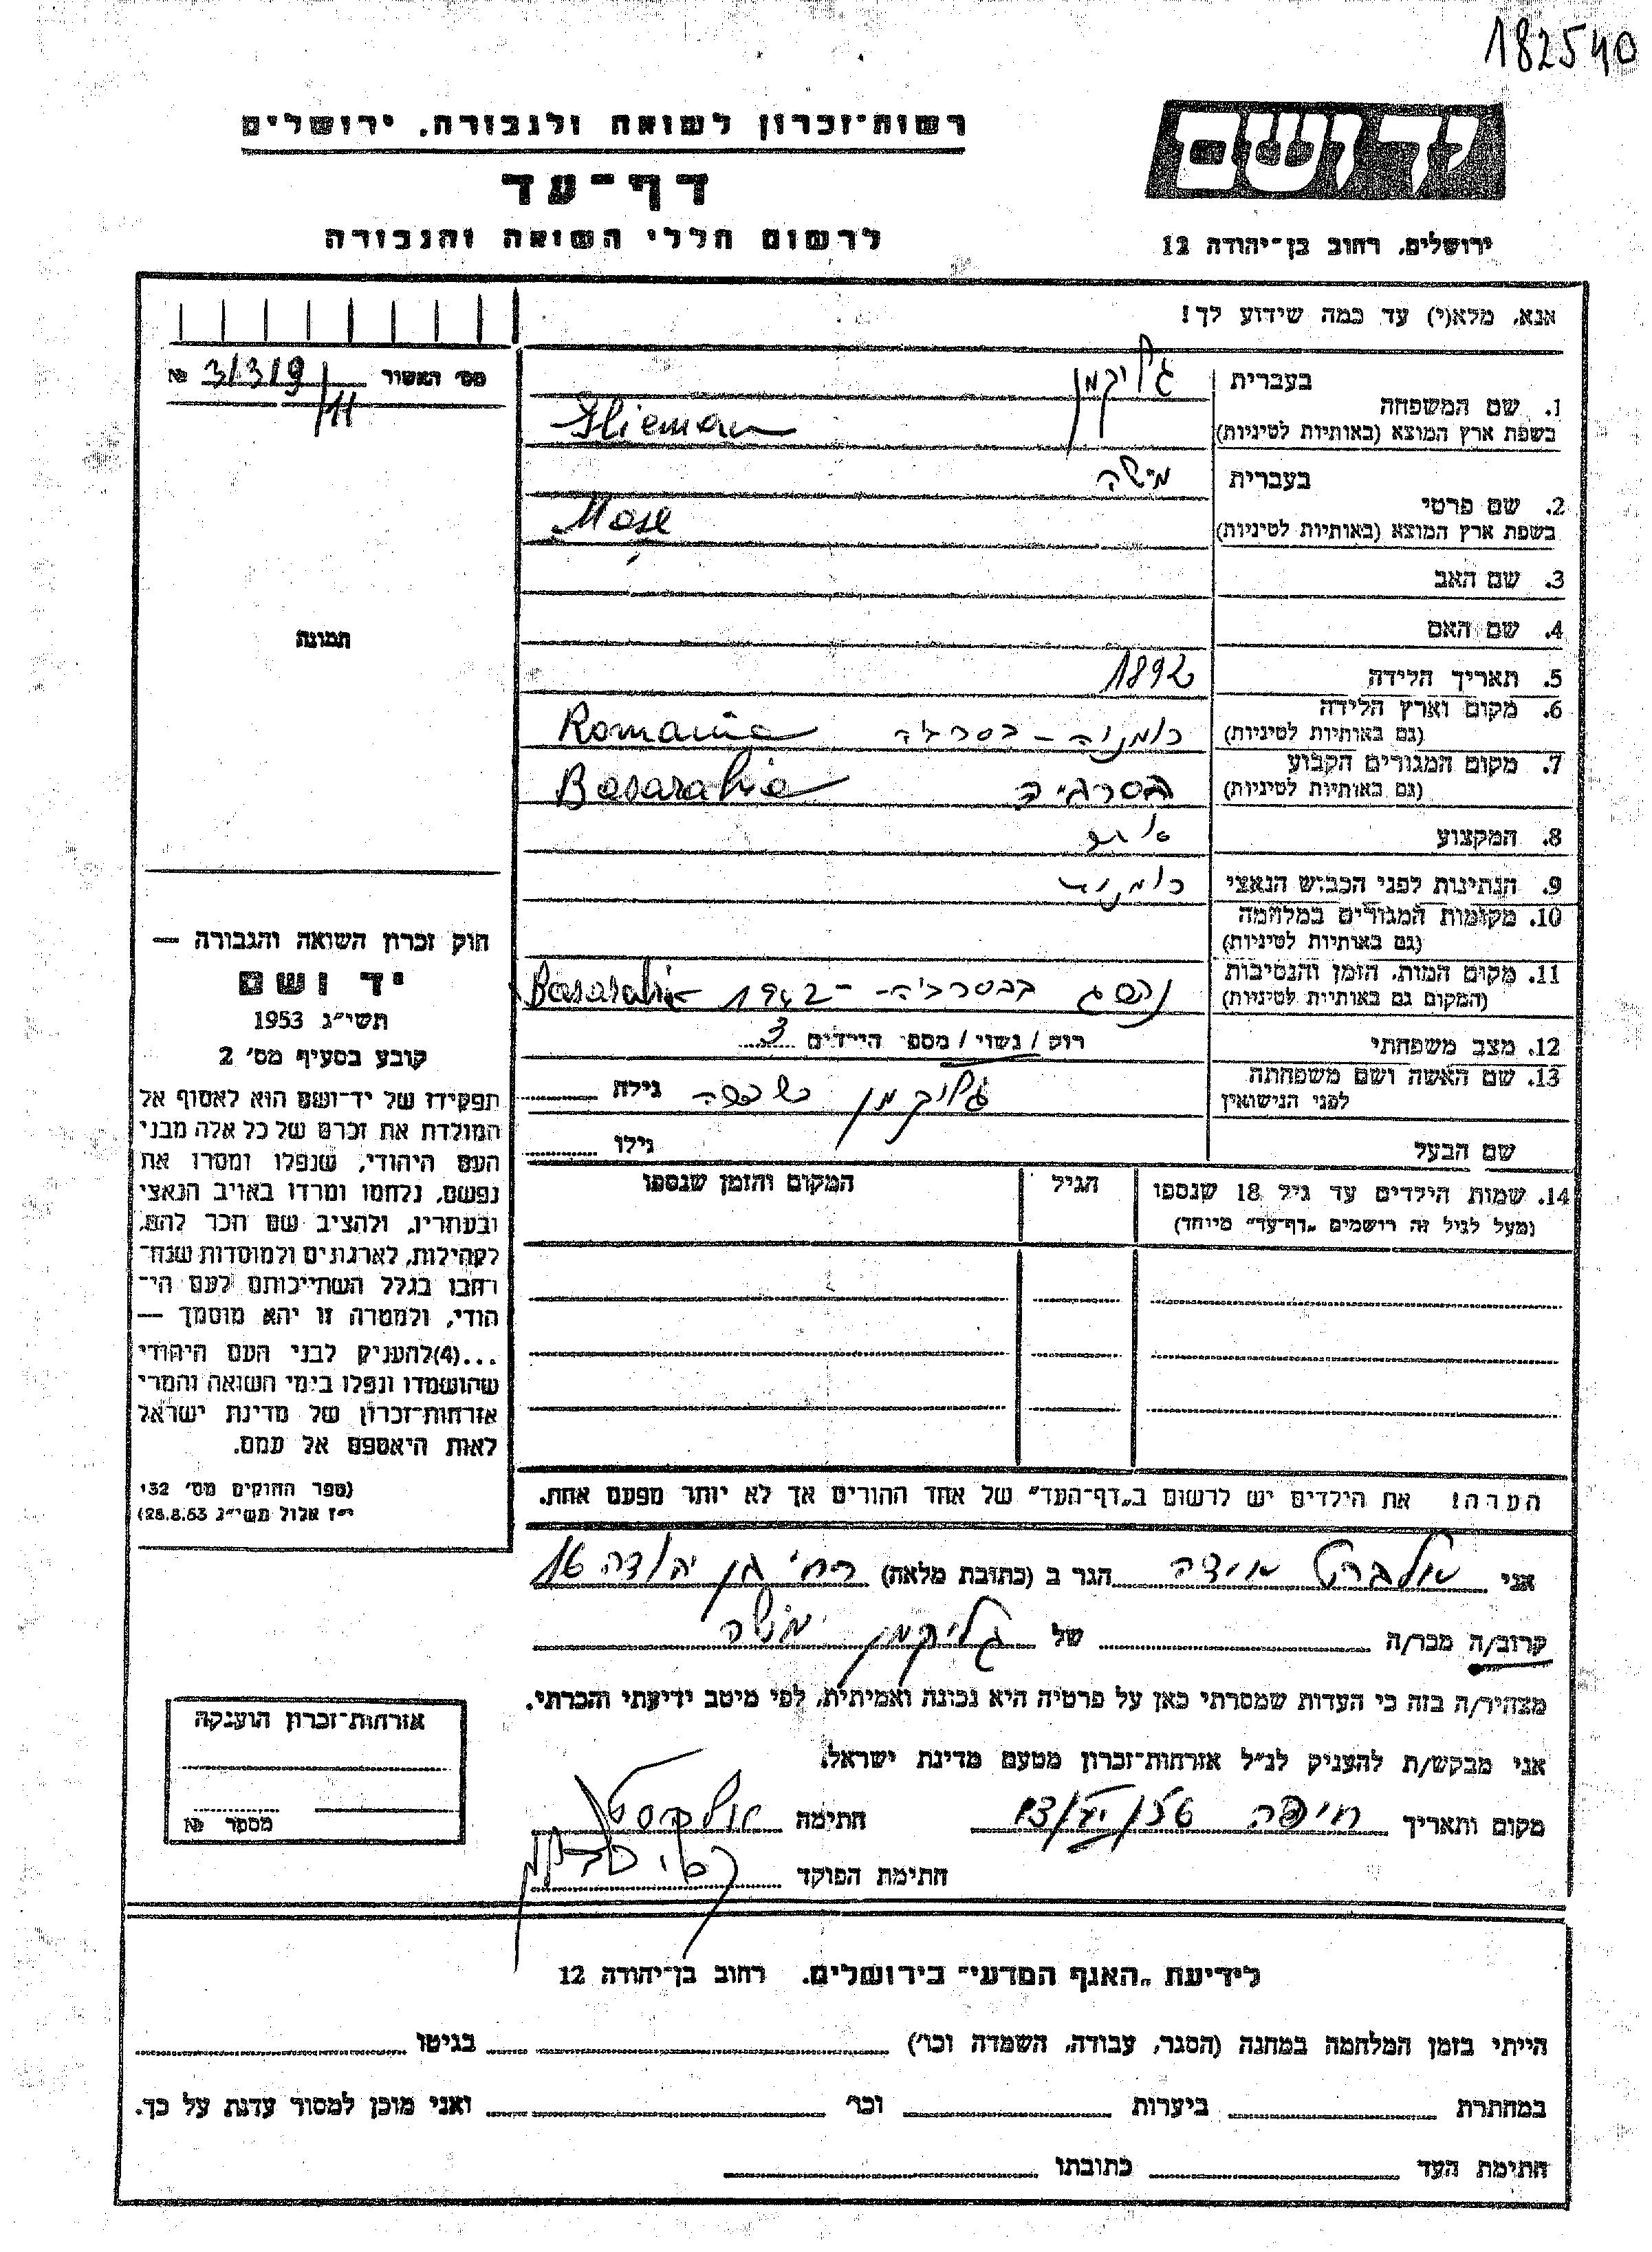 182540
רשות־זכרון לשואה ולגבורה, ירושלים
יד ושם
דף־עד
לרשום חללי השואה והגבורה
ירושלים, רחוב בן־יהודה 12
אנא, מלא(י) עד כמה שידוע לך!
מס׳ האשור 31319/11 №
1. שם המשפחה בעברית גליקמן
בשפת ארץ המוצא (באותיות לטיניות) Glicman
2. שם פרטי בעברית מישה
בשפת ארץ המוצא (באותיות לטיניות) Moşe
3. שם האב
4. שם האם
תמונה
5. תאריך הלידה 1892
6. מקום וארץ הלידה רומניה - בסרביה Romania
(גם באותיות לטיניות)
7. מקום המגורים הקבוע בסרביה Basarabia
(גם באותיות לטיניות)
8. המקצוע
9. הנתינות לפני הכבוש הנאצי רומנית
10. מקומות המגורים במלחמה
(גם באותיות לטיניות)
11. מקום המות, הזמן והנסיבות נהרג בבסרביה - 1942 Basarabia
(המקום גם באותיות לטיניות)
12. מצב משפחתי רווק / נשוי / מספר הילדים 3
13. שם האשה ושם משפחתה גליקמן גילה
לפני הנישואין
שם הבעל גילו
14. שמות הילדים עד גיל 18 שנספו הגיל המקום והזמן שנספו
(מעל לגיל זה רושמים „דף־עד״ מיוחד)
חוק זכרון השואה והגבורה —
יד ושם
תשי״ג 1953
קובע בסעיף מס׳ 2
תפקידו של יד־ושם הוא לאסוף אל
המולדת את זכרם של כל אלה מבני
העם היהודי, שנפלו ומסרו את
נפשם, נלחמו ומרדו באויב הנאצי
ובעוזריו, ולהציב שם וזכר להם,
לקהילות, לארגונים ולמוסדות שנח־
רבו בגלל השתייכותם לעם הי־
הודי, ולמטרה זו יהא מוסמך —
...(4)להעניק לבני העם היהודי
שהושמדו ונפלו בימי השואה והמרי
אזרחות־זכרון של מדינת ישראל
לאות היאספם אל עמם.
(ספר החוקים מס׳ 132,
י״ז אלול תשי״ג 28.8.53)
הערה! את הילדים יש לרשום ב„דף־העד״ של אחד ההורים אך לא יותר מפעם אחת.
אני אלברט אידה הגר ב (כתובת מלאה) רח׳ בן יהודה 16
קרוב/ה מכר/ה של גליקמן משה
מצהיר/ה בזה כי העדות שמסרתי כאן על פרטיה היא נכונה ואמיתית, לפי מיטב ידיעתי והכרתי.
אני מבקש/ת להעניק לנ״ל אזרחות־זכרון מטעם מדינת ישראל.
מקום ותאריך חיפה חתימה אלברט
חתימת הפוקד
אזרחות־זכרון הוענקה
מספר №
לידיעת „האגף המדעי״ בירושלים, רחוב בן־יהודה 12
הייתי בזמן המלחמה במחנה (הסגר, עבודה, השמדה וכו׳) בגיטו
במחתרת ביערות וכו׳ ואני מוכן למסור עדות על כך.
חתימת העד כתובתו